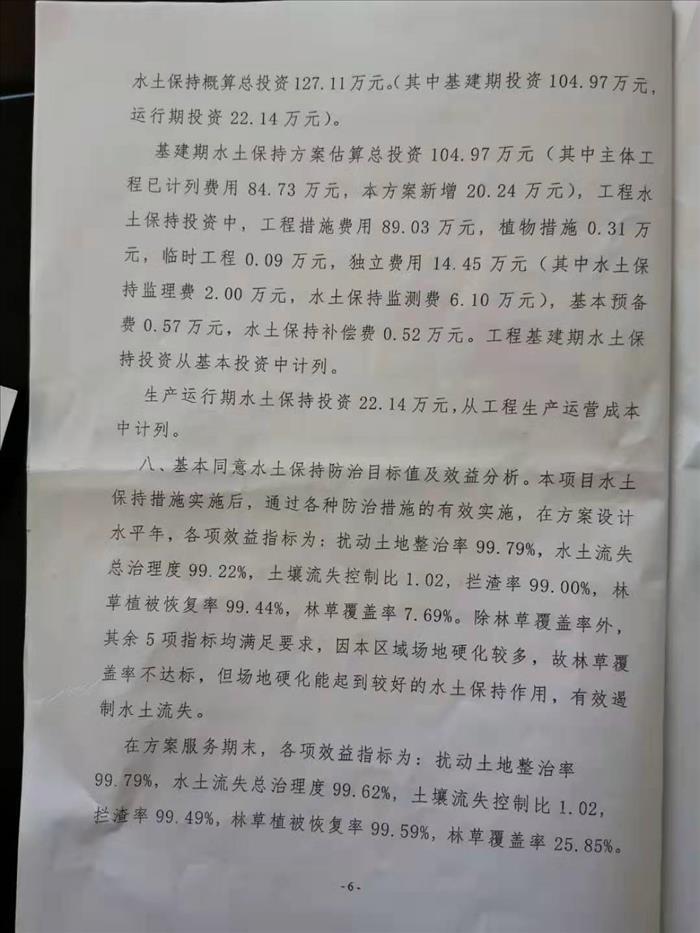 水土保持概算总投资127.11万元。(其中基建期投资104.97万元,
运行期投资22.14万元)。
基建期水土保持方案估算总投资104.97万元(其中主体工
程已计列费用84.73万元,本方案新增20.24万元),工程水
土保持投资中,工程措施费用89.03万元,植物措施0.31万
元,临时工程0.09万元,独立费用14.45万元(其中水土保
持监理费2.00万元,水土保持监测费6.10万元),基本预备
费0.57万元,水土保持补偿费0.52万元。工程基建期水土保
持投资从基本投资中计列。
生产运行期水土保持投资22.14万元,从工程生产运营成本
中计列。
八、基本同意水土保持防治目标值及效益分析。本项目水土
保持措施实施后,通过各种防治措施的有效实施,在方案设计
水平年,各项效益指标为:扰动土地整治率99.79%,水土流失
总治理度99.22%,土壤流失控制比1.02,拦渣率99.00%,林
草植被恢复率99.44%,林草覆盖率7.69%。除林草覆盖率外,
其余5项指标均满足要求,因本区域场地硬化较多,故林草覆
盖率不达标,但场地硬化能起到较好的水土保持作用,有效遏
制水土流失。
在方案服务期末,各项效益指标为:扰动土地整治率
99.79%,水土流失总治理度99.62%,土壤流失控制比1.02,
拦渣率99.49%,林草植被恢复率99.59%,林草覆盖率25.85%。
-6-